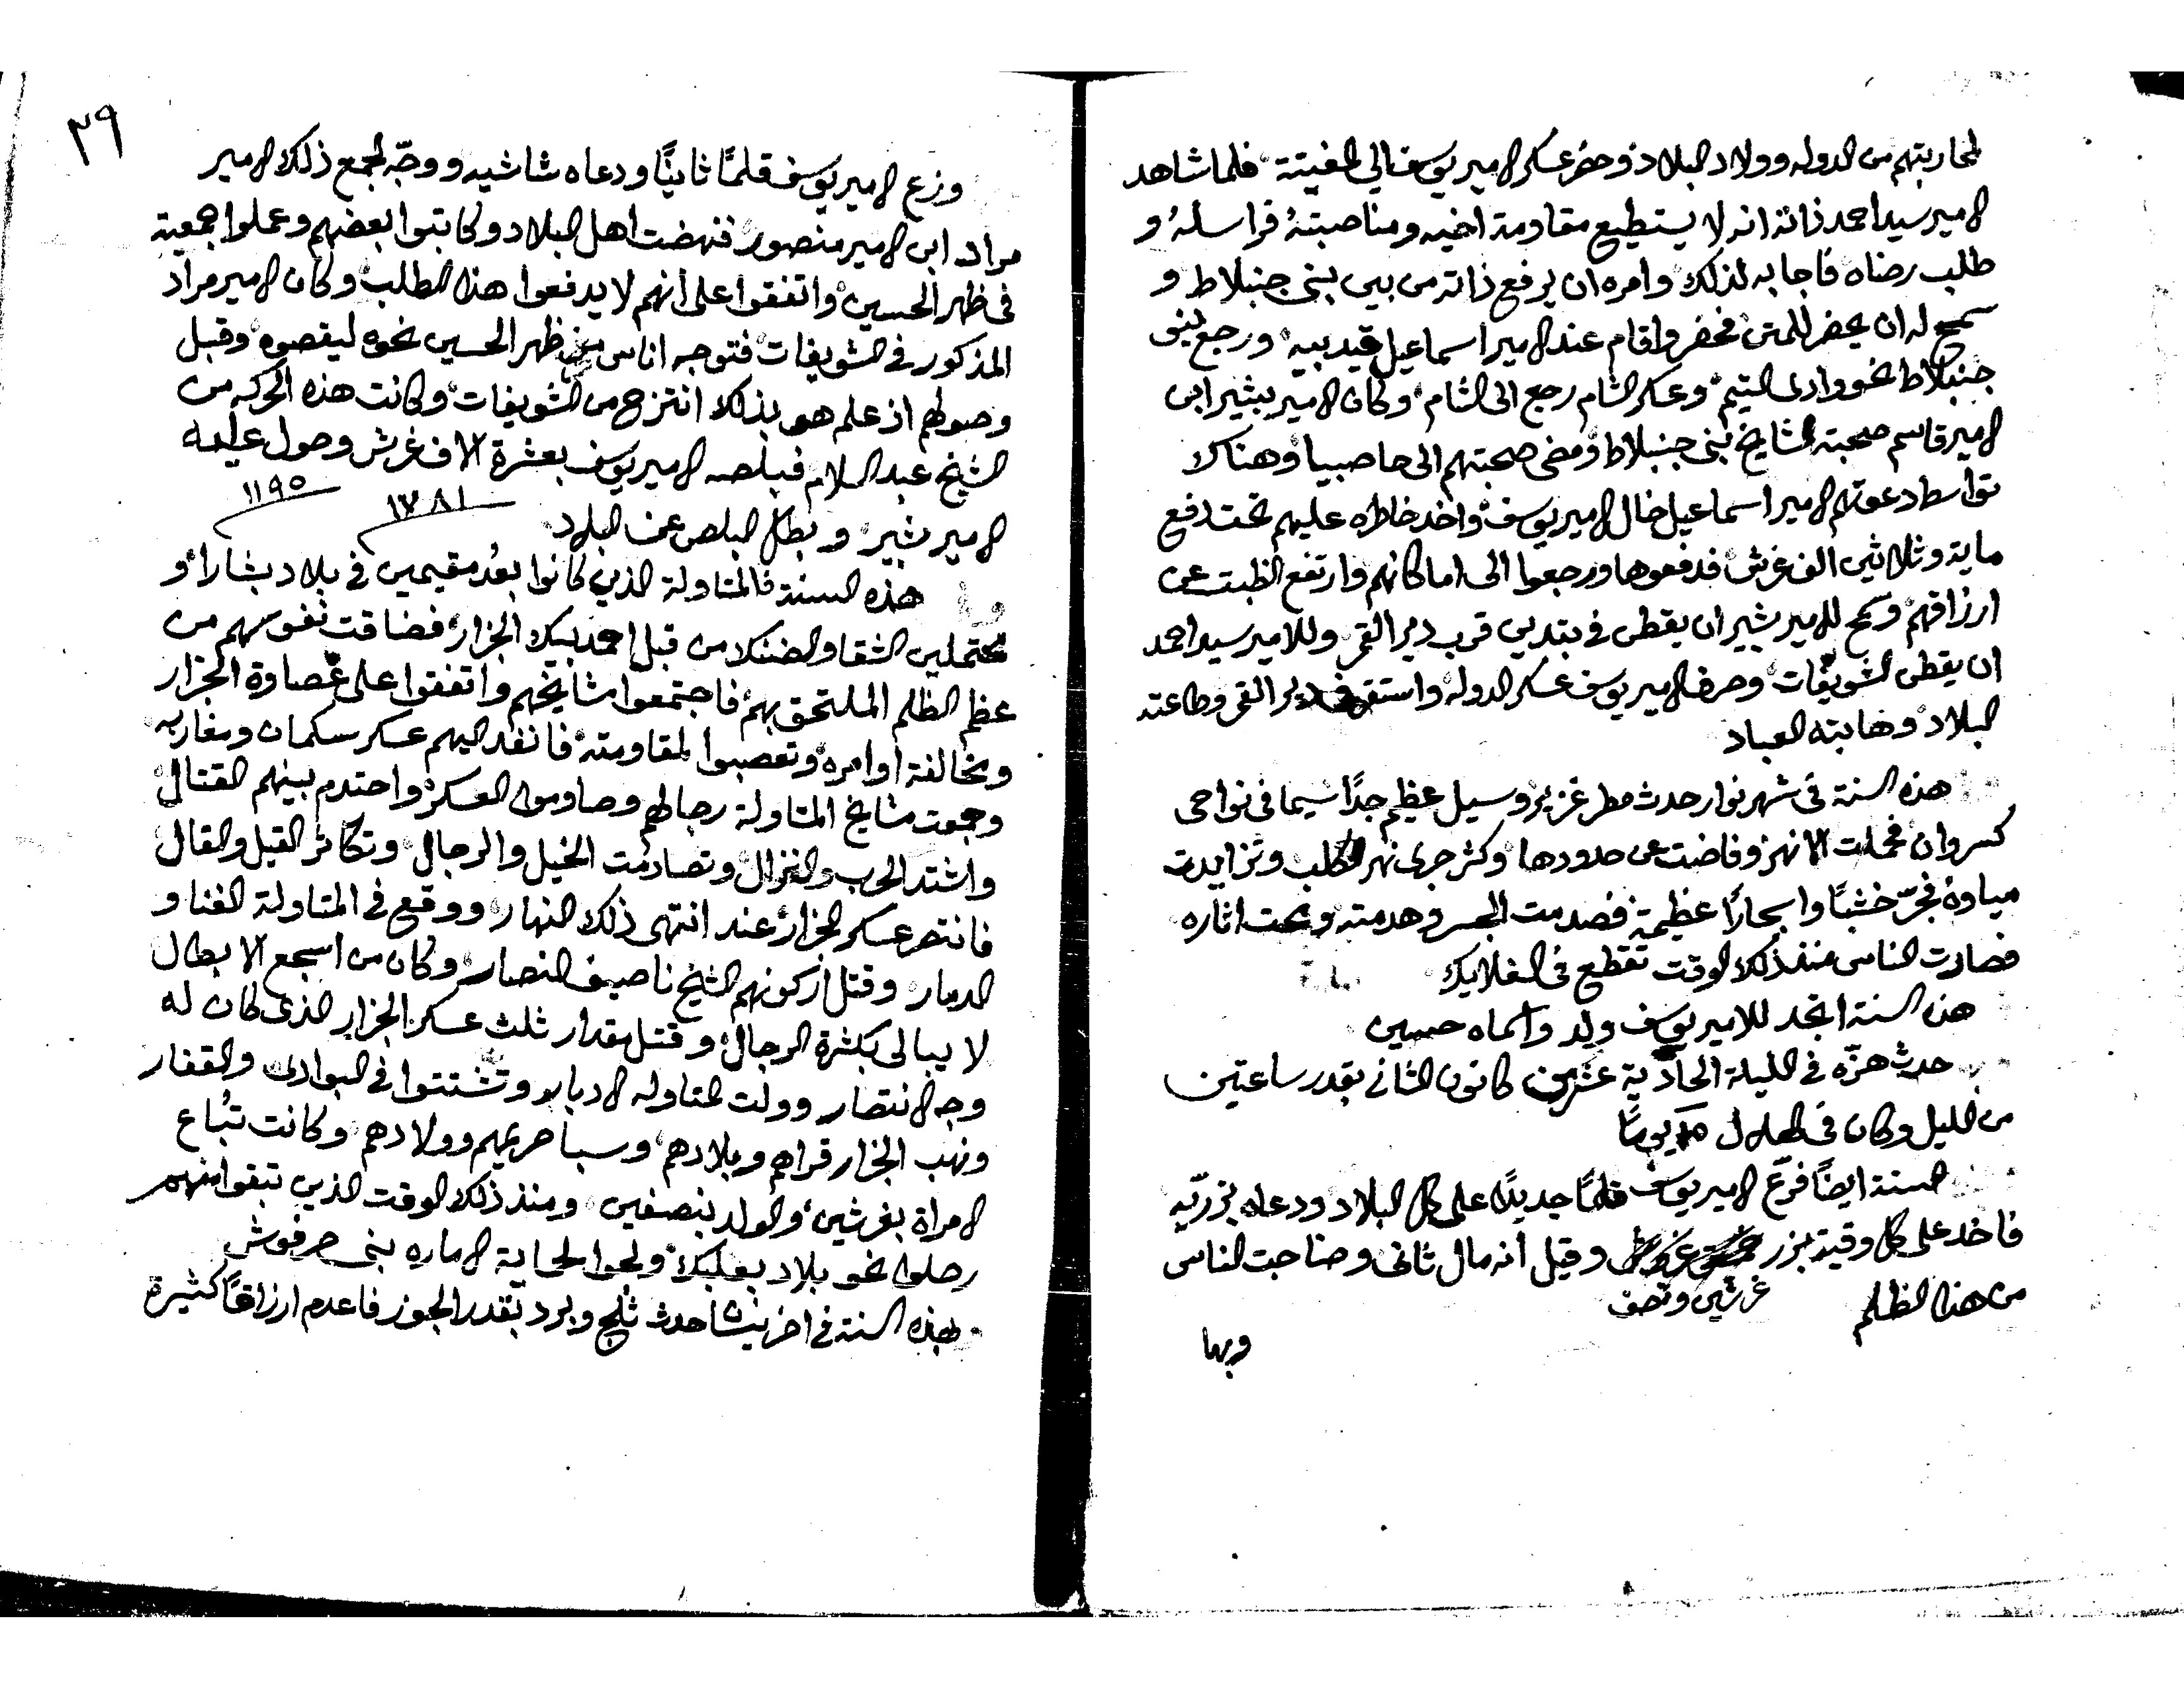 لمحاربتهم من الدوله وولاد البلاد وحضر عسكر الامير يوسف الى المغيتة فلما شاهد
الامير سيد احمد ذاته انه لا يستطيع مقاومة اخيه ومناصبتهُ فراسلهُ و
طلب رضاه فاجابه لذلك وامره ان يرفع ذاته من بين بنى جنبلاط و
سمح له ان يحضر للمتن فحضر واقام عند الامير اسماعيل قيدبيه ورجع بنى
جنبلاط نحو وادى التيم وعسكر الشام رجع الى الشام وكان الامير بشير ابن
الامير قاسم صحبة المشايخ بنى جنبلاط ومضى صحبتهم الى حاصبيا وهناك
تواسط دعوتهم الامير اسماعيل خال الامير يوسف واخد خاطره عليهم تحت دفع
ماية وثلاثين الف غرش فدفعوها ورجعوا الى اماكانهم وارتفع الظبت عن
ارزاقهم وسمح للامير بشير ان يقطن فى بتدين قرب دير القمر وللامير سيد احمد
ان يقطن الشويفات وصرف الامير يوسف عسكر الدوله واستقر فى دير القمر وطاعته
البلاد وهابته العباد
هذه السنة فى شهر نوار حدث مطر غزير وسيل عظيم جدًا سيما فى نواحى
كسروان فحملت الانهر وفاضت عن حدودها وكثر جرى نهر الكلب وتزايدت
مياوهُ فجرّ خشبًا واحجارًا عظيمة فصدمت الجسر وهدمته ومحت اثاره
فصارت الناس منذ ذلك الوقت تقطع فى الفلايك
هذه السنة اتجد للامير يوسف ولد واسماه حسين
حدث هزّه فى الليلة الحادية عشرين كانون الثانى بقدر ساعتين
من الليل وكان فى الهلال يومًا
السنة ايضًا فرّع الامير يوسف قلمًا جديدًا على كل البلاد ودعاه بزريّه
فاخد على كل وقية بزر وقيل انه مال ثانى وضاجت الناس
غرشين ونصف
من هذا الظلم
وبها
٢٩
وزع الامير يوسف قلمًا ثانيًا ودعاه شاشيه ووجّه لجمع ذلك الامير
مراد ابن الامير منصور فنهضت اهل البلاد وكاتبوا بعضهم وعملوا جمعية
فى ظهر الحسين واتفقوا على انهم لا يدفعوا هذا الطلب وكان الامير مراد
المذكور فى الشويفات فتوجه اناس من ظهر الحسين نحوه ليقصوه وقبل
وصولهم اذ علم هو بذلك انتزح من الشويفات وكانت هذه الحركه من
الشيخ عبد السلام فبلصه الامير يوسف بعشرة الاف غرش وحول عليه
الامير بشير وبطل البلص عن البلاد
١٧٨١ ١١٩٥
هذه السنة فالمتاولة الذين كانوا بعدُ مقيمين فى بلاد بشاره و
محتملين الشقا والضنك من قبل احمد بيك الجزار فضاقت نفوسهم من
عظم الظلم الملتحق بهم فاجتمعوا مشايخهم واتفقوا على عصاوة الجزار
ومخالفة اوامره وتعصبوا لمقاومته فانفد اليهم عسكر سكمان ومغاربه
وجمعت مشايخ المتاولة رجالهم وصادموا العسكر واحتدم بينهم القتال
واشتد الحرب والنزال وتصادمت الخيل والرجال وتكاثر القيل والقال
فانتصر عسكر الجزار عند انتهى ذلك النهار ووقع فى المتاولة الفنا و
الدمار وقتل اركونهم الشيخ ناصيف النصار وكان من اسجع الابطال
لا يبالى بكثرة الرجال وقتل مقدار ثلث عسكر الجزار الذى كان له
وجه الانتصار وولت المتاوله الادبار وتشتتوا فى البوادى والقفار
ونهب الجزار قراهم وبلادهم وسبا حريمهم وولادهم وكانت تُباع
الامراة بغرشين والولد بنصفين ومنذ ذلك الوقت الذين تبقوا منهم
رحلوا نحو بلاد بعلبك ولجوا لحماية الاماره بنى حرفوش
بهذه السنة فى اخر حدث ثلج وبرد بقدر الجوز فاعدم ارزاقًا كثيرة